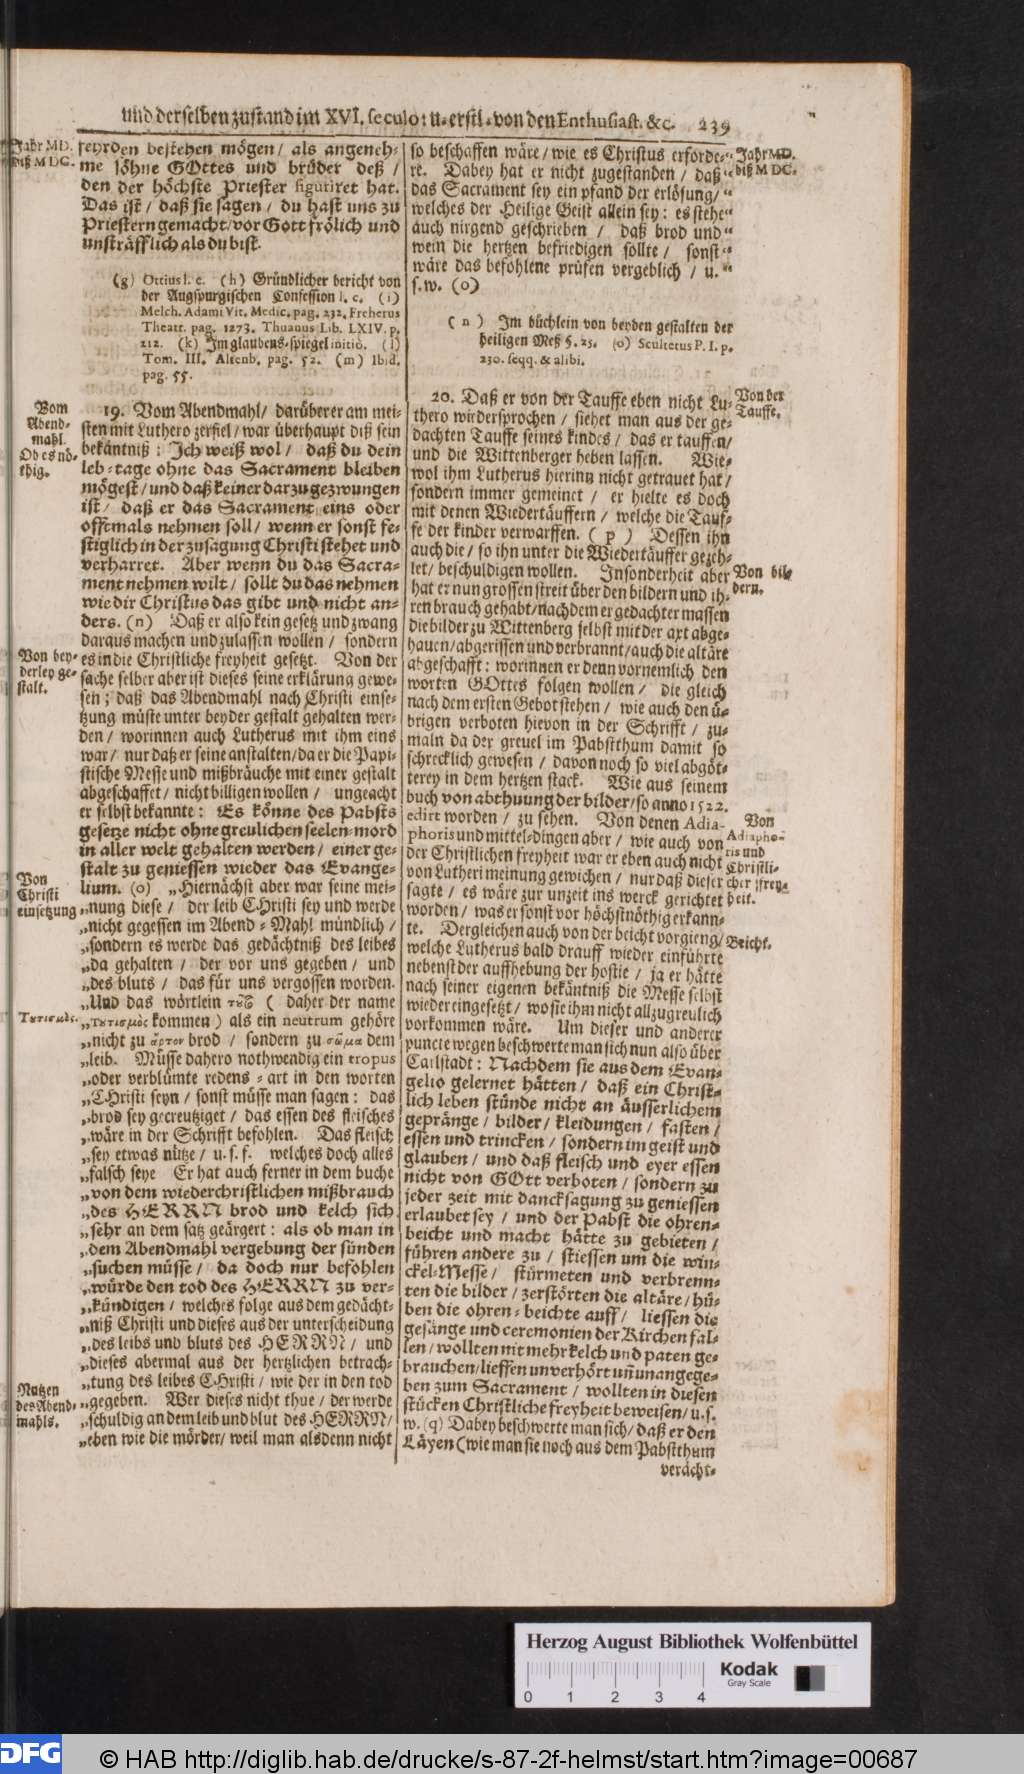 und derselben zustand im XVI. seculo: u. erstl. von den Enthusiast. &c. 239
Jahr MD.
biß M DC.
sehrden bestehen mögen / als angeneh-
me söhne GOttes und brüder deß /
den der höchste Priester figuriret hat.
Das ist / daß sie sagen / du hast uns zu
Priestern gemacht / vor Gott frölich und
unsträfflich als du bist.
(g) Ottius l. c. (h) Gründlicher bericht von
der Augspurgischen Confession l. c. (i)
Melch. Adami Vit. Medic. pag. 232. Freherus
Theatr. pag. 1273. Thuanus Lib. LXIV. p.
212. (k) Im glaubens-spiegel initio. (l)
Tom. III. Altenb. pag. 52. (m) Ibid.
pag. 55.
Vom
Abend-
mahl.
Ob es nö-
thig.
19. Vom Abendmahl / darüber er am mei-
sten mit Luthero zerfiel / war überhaupt diß sein
bekäntniß: Ich weiß wol / daß du dein
leb-tage ohne das Sacrament bleiben
mögest / und daß keiner darzu gezwungen
ist / daß er das Sacrament eins oder
offtmals nehmen soll / wenn er sonst fe-
stiglich in der zusagung Christi stehet und
verharret. Aber wenn du das Sacra-
ment nehmen wilt / sollt du das nehmen
wie dir Christus das gibt und nicht an-
ders. (n) Daß er also kein gesetz und zwang
daraus machen und zulassen wollen / sondern
es in die Christliche freyheit gesetzt. Von der
sache selber aber ist dieses seine erklärung gewe-
sen; daß das Abendmahl nach Christi einse-
tzung müste unter beyder gestalt gehalten wer-
den / worinnen auch Lutherus mit ihm eins
war / nur datz er seine anstalten / da er die Papi-
stische Messe und mißbräuche mit einer gestalt
abgeschaffet / nicht billigen wollen / ungeacht
er selbst bekannte: Es könne des Pabsts
gesetze nicht ohne greulichen seelen-mord
in aller welt gehalten werden / einer ge-
stalt zu geniessen wieder das Evange-
lium. (o) „Hiernächst aber war seine mei-
„nung diese / der leib CHristi sey und werde
„nicht gegessen im Abend-Mahl mündlich /
„sondern es werde das gedächtniß des leibes
„da gehalten / der vor uns gegeben / und
„des bluts / das für uns vergossen worden.
„Und das wörtlein τοῦτο ( daher der name
„Τουτισμὸς kommen ) als ein neutrum gehöre
„nicht zu ἄρτον brod / sondern zu σῶμα dem
„leib. Müsse dahero nothwendig ein tropus
„oder verblümte redens-art in den worten
„CHristi seyn / sonst müsse man sagen: das
„brod sey gecreutziget / das essen des fleisches
„wäre in der Schrifft befohlen. Das fleisch
„sey etwas nütze / u. s. f. welches doch alles
„falsch seye Er hat auch ferner in dem buche
„von dem wiederchristlichen mißbrauch
„des HERRN brod und kelch sich
„sehr an dem satz geärgert: als ob man in
„dem Abendmahl vergebung der sünden
„suchen müsse / da doch nur befohlen
„würde den tod des HERRN zu ver-
„kündigen / welches folge aus dem gedächt-
„niß Christi und dieses aus der unterscheidung
„des leibs und bluts des HERRN / und
„dieses abermal aus der hertzlichen betrach-
„tung des leibes CHristi / wie der in den tod
„gegeben. Wer dieses nicht thue / der werde
„schuldig an dem leib und blut des HERRN /
„eben wie die mörder / weil man alsdenn nicht
Von bey-
derley ge-
stalt.
Von
Christi
einsetzung
Τουτισμὸς.
Nutzen
des Abend-
mahls.
so beschaffen wäre / wie es Christus erforde-“
re. Dabey hat er nicht zugestanden / daß“
das Sacrament sey ein pfand der erlösung /“
welches der Heilige Geist allein sey: es stehe“
auch nirgend geschrieben / daß brod und“
wein die hertzen befriedigen sollte / sonst“
wäre das befohlene prüfen vergeblich / u.“
s. w. (o)
Jahr MD.
biß M DC.
(n) Im büchlein von beyden gestalten der
heiligen Meß §. 25. (o) Scultetus P. I. p.
230. seqq. & alibi.
20. Daß er von der Tauffe eben nicht Lu-
thero wiedersprochen / siehet man aus der ge-
dachten Tauffe seines kindes / das er tauffen /
und die Wittenberger heben lassen. Wie-
wol ihm Lutherus hierinn nicht getrauet hat /
sondern immer gemeinet / er hielte es doch
mit denen Wiedertäuffern / welche die Tauf-
fe der kinder verwarffen. ( p ) Dessen ihn
auch die / so ihn unter die Wiedertäuffer gezeh-
let / beschuldigen wollen. Insonderheit aber
hat er nun grossen streit über den bildern und ih-
ren brauch gehabt / nachdem er gedachter massen
die bilder zu Wittenberg selbst mit der axt abge-
hauen / abgerissen und verbrannt / auch die altäre
abgeschafft: worinnen er denn vornemlich den
worten GOttes folgen wollen / die gleich
nach dem ersten Gebot stehen / wie auch den ü-
brigen verboten hievon in der Schrifft / zu-
maln da der greuel im Pabstthum damit so
schrecklich gewesen / davon noch so viel abgöt-
terey in dem hertzen stack. Wie aus seinem
buch von abthuung der bilder / so anno 1522.
edirt worden / zu sehen. Von denen Adia-
phoris und mittel-dingen aber / wie auch von
der Christlichen freyheit war er eben auch nicht
von Lutheri meinung gewichen / nur daß dieser
sagte / es wäre zur unzeit ins werck gerichtet
worden / was er sonst vor höchstnöthig erkann-
te. Dergleichen auch von der beicht vorgieng /
welche Lutherus bald drauff wieder einführte
nebenst der auffhebung der hostie / ja er hätte
nach seiner eigenen bekäntniß die Messe selbst
wieder eingesetzt / wo sie ihm nicht allzugreulich
vorkommen wäre. Um dieser und anderer
puncte wegen beschwerte man sich nun also über
Carlstadt: Nachdem sie aus dem Evan-
gelio gelernet hätten / daß ein Christ-
lich leben stünde nicht an äusserlichem
gepränge / bilder / kleidungen / fasten /
essen und trincken / sondern im geist und
glauben / und daß fleisch und eyer essen
nicht von GOtt verboten / sondern zu
jeder zeit mit dancksagung zu geniessen
erlaubet sey / und der Pabst die ohren-
beicht und macht hätte zu gebieten /
führen andere zu / stiessen um die win-
ckel-Messe / stürmeten und verbrenn-
ten die bilder / zerstörten die altäre / hü-
ben die ohren-beichte auff / liessen die
gesänge und ceremonien der Kirchen fal-
len / wollten nit mehr kelch und paten ge-
brauchen / lieffen unverhört uñ unangege-
ben zum Sacrament / wollten in diesen
stücken Christliche freyheit beweisen / u. s.
w. (q) Dabey beschwerte man sich / daß er den
Läyen (wie man sie noch aus dem Pabstthum
verächt-
Von der
Tauffe.
Von bil-
dern.
Von
Adiapho-
ris und
Christli-
cher frey-
heit.
Beicht.
Herzog August Bibliothek Wolfenbüttel
Kodak
Gray Scale
0 1 2 3 4
DFG
© HAB http://diglib.hab.de/drucke/s-87-2f-helmst/start.htm?image=00687